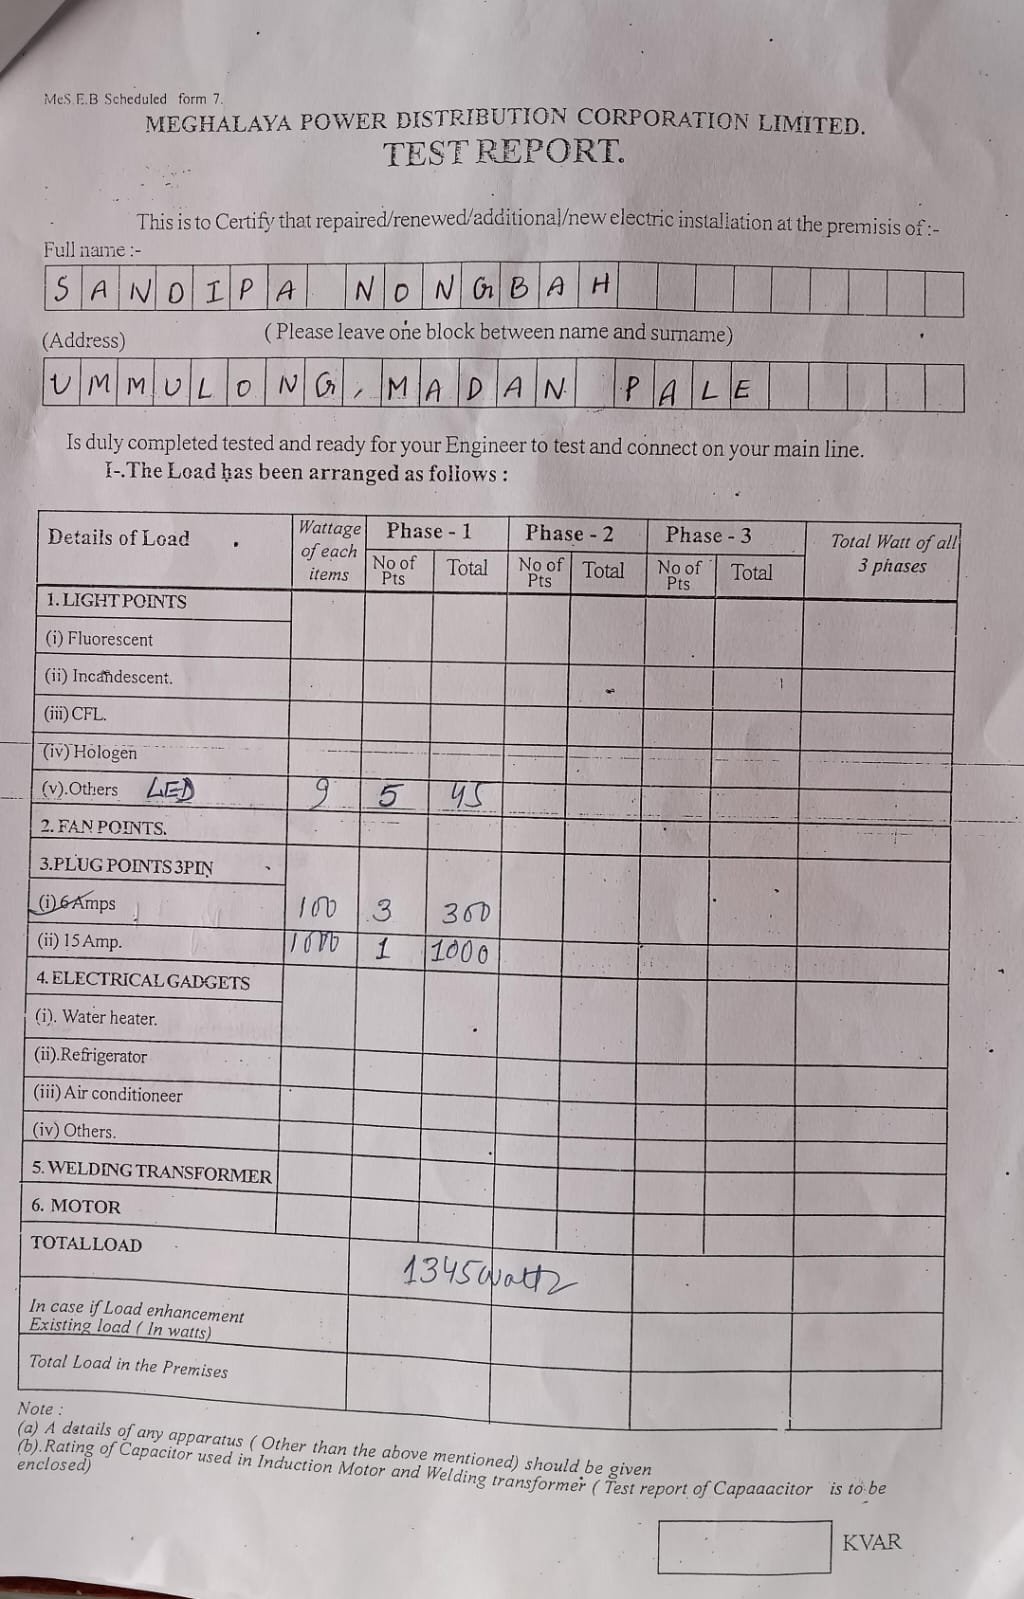 MeS.E.B Scheduled form 7.
MEGHALAYA POWER DISTRIBUTION CORPORATION LIMITED.
TEST REPORT.
This is to Certify that repaired/renewed/additional/new electric installation at the premisis of :-
Full name :-
SANDIPA NONGBAH
(Address) ( Please leave one block between name and surname)
UMMULONG, MADAN PALE
Is duly completed tested and ready for your Engineer to test and connect on your main line.
I-.The Load has been arranged as follows :
Details of Load Wattage of each items Phase - 1 Phase - 2 Phase - 3 Total Watt of all 3 phases
No of Pts Total No of Pts Total No of Pts Total
1. LIGHT POINTS
(i) Fluorescent
(ii) Incandescent.
(iii) CFL.
(iv) Hologen
(v).Others LED 9 5 45
2. FAN POINTS.
3.PLUG POINTS 3PIN
(i) 6 Amps 100 3 300
(ii) 15 Amp. 1000 1 1000
4. ELECTRICAL GADGETS
(i). Water heater.
(ii).Refrigerator
(iii) Air conditioneer
(iv) Others.
5. WELDING TRANSFORMER
6. MOTOR
TOTAL LOAD 1345 watts
In case if Load enhancement
Existing load ( In watts)
Total Load in the Premises
Note :
(a) A details of any apparatus ( Other than the above mentioned) should be given
(b).Rating of Capacitor used in Induction Motor and Welding transformer ( Test report of Capaaacitor is to be
enclosed)
KVAR